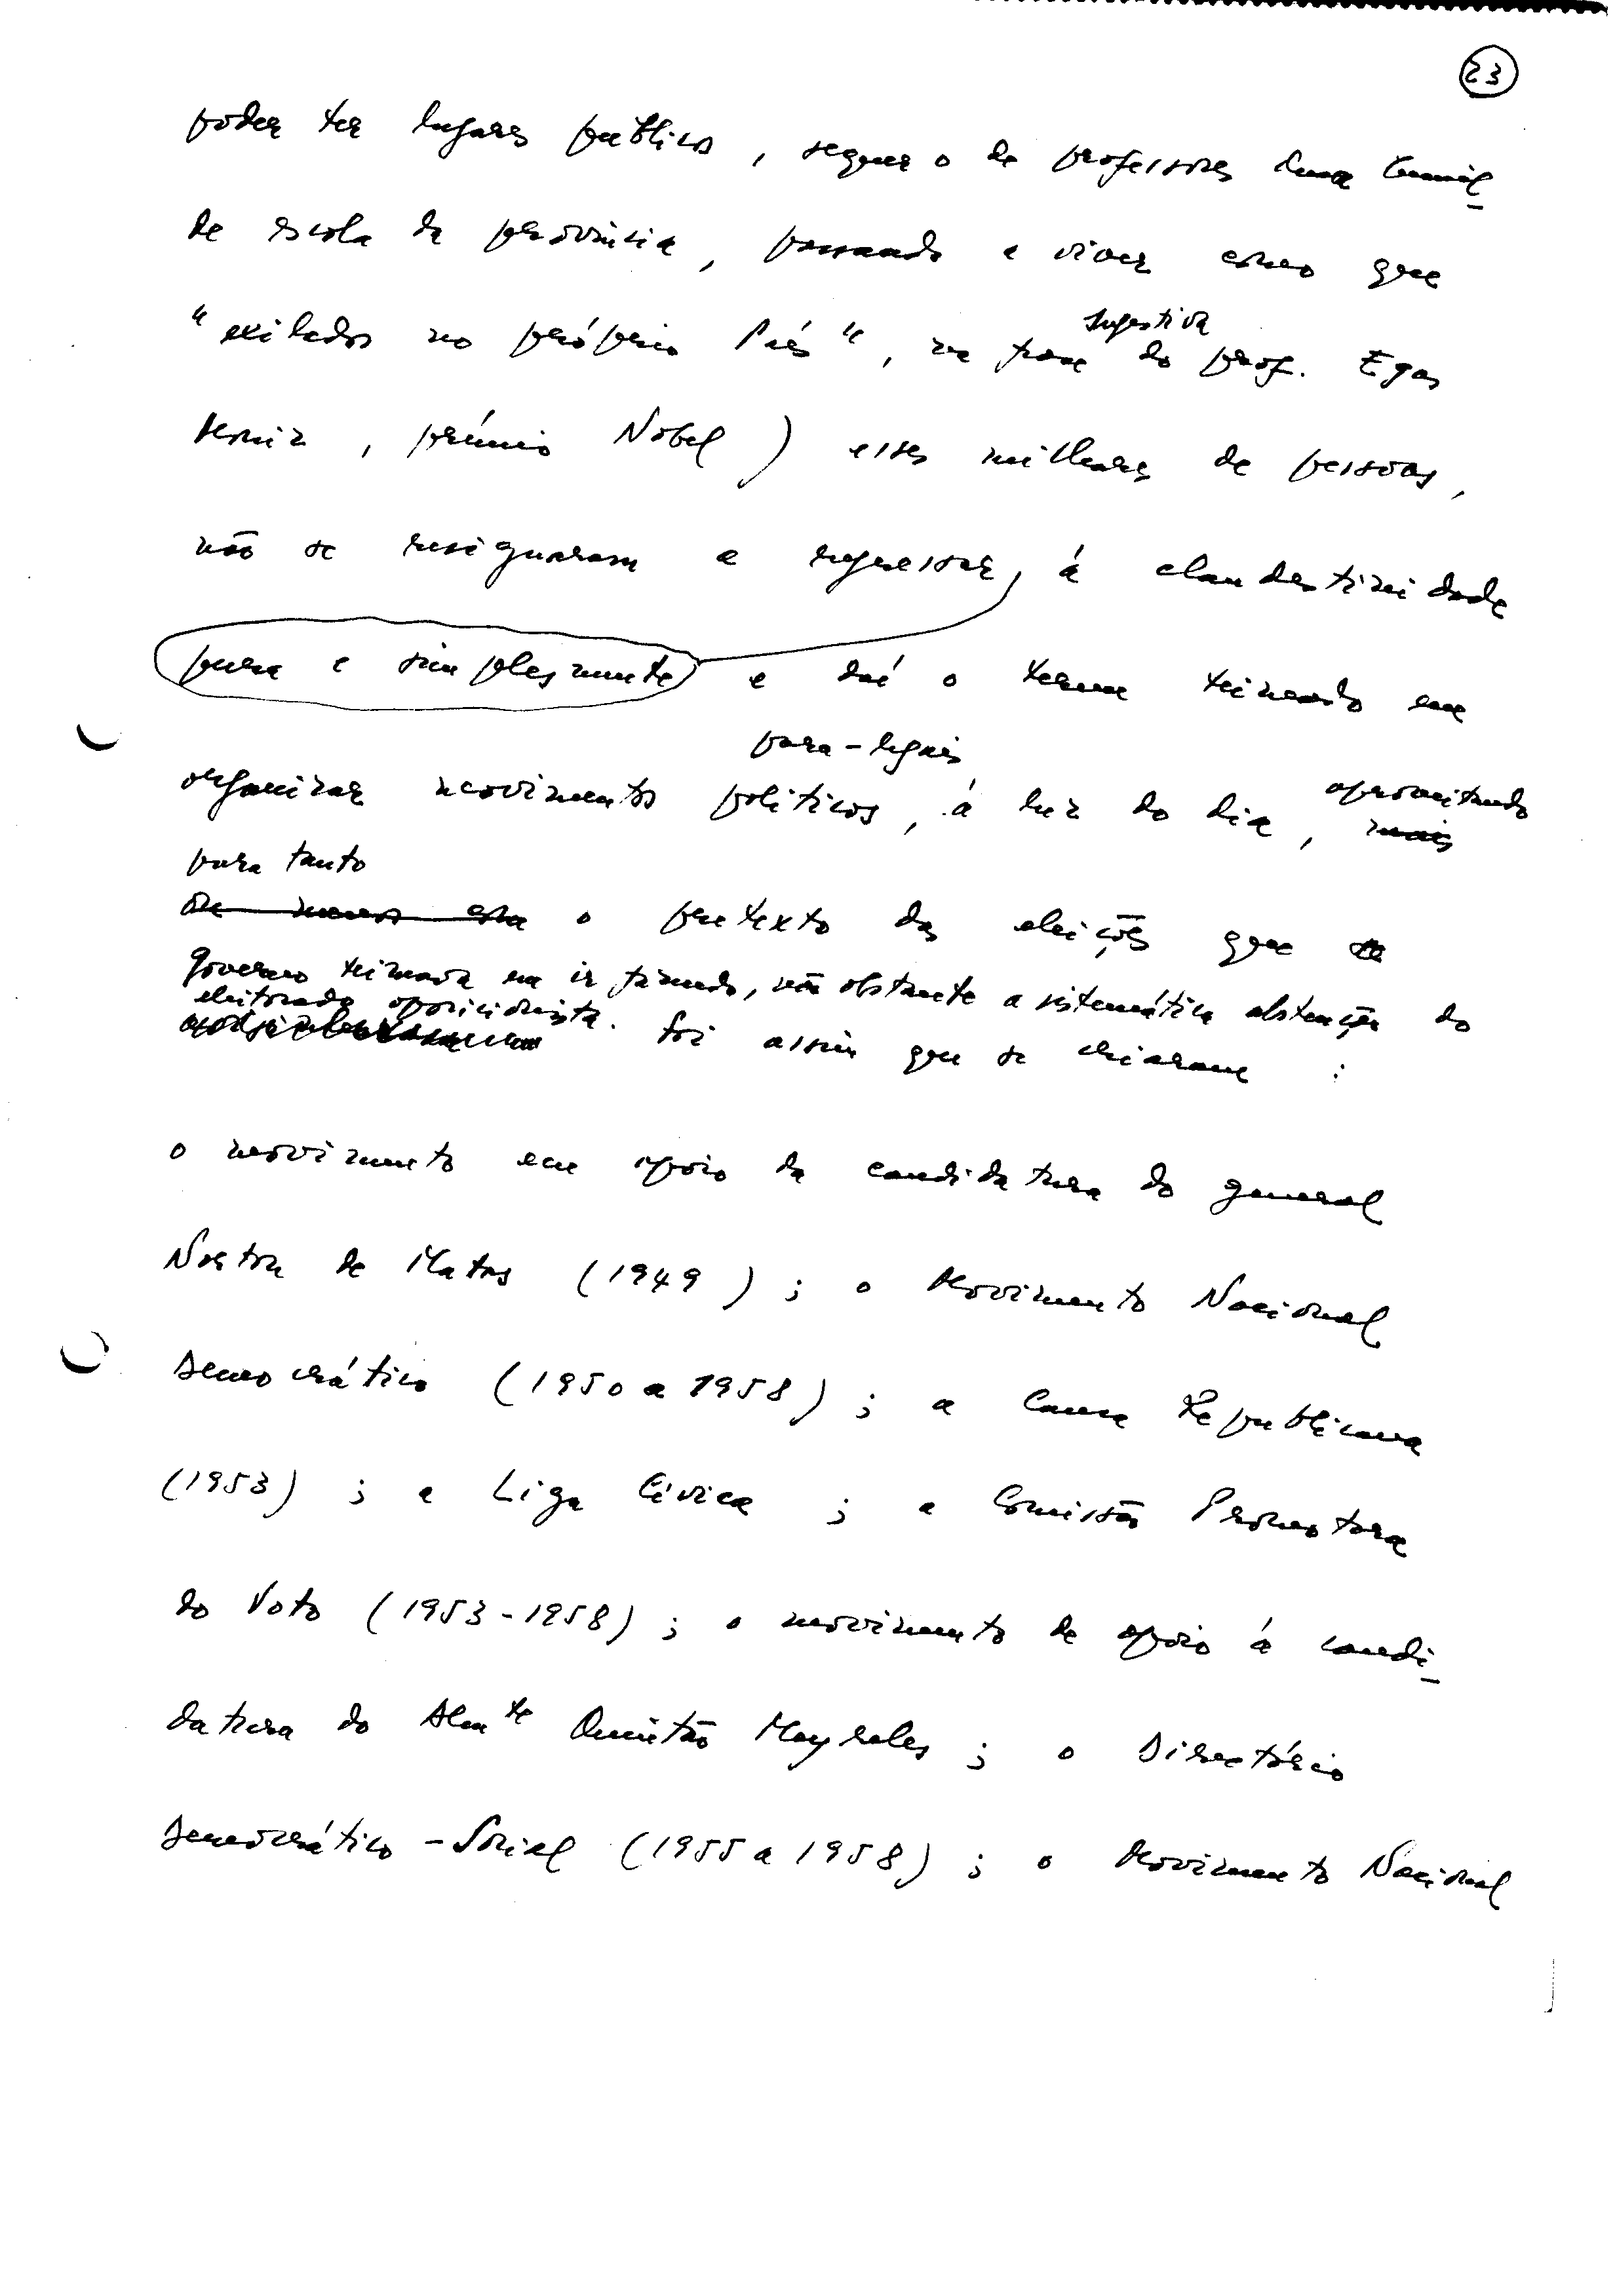 23
poder ter lugares públicos, sequer o de professores duma humil-
de escola da província, passando a viver como que
"exilados no próprio País", na frase sugestiva do prof. Egas
Moniz, prémio Nobel) esses milhares de pessoas,
não se resignaram a regressar, á clandestinidade
pura e simplesmente e daí o terem teimado em
organizar movimentos políticos para-legais, á luz do dia, aproveitando mais
para tanto
o pretexto das eleições que o
Governo teimava em ir fazendo, não obstante a sistemática abstenção do
eleitorado oposicionista. Foi assim que se criaram:
o movimento em apoio da candidatura do general
Norton de Matos (1949); o Movimento Nacional
Democrático (1950 a 1958); a Causa Republicana
(1953); a Liga Cívica; a Comissão Promotora
do Voto (1953-1958); o movimento de apoio á candi-
datura do Almte Quintão Meyreles; o Directório
Democrático-Social (1955 a 1958); o Movimento Nacional